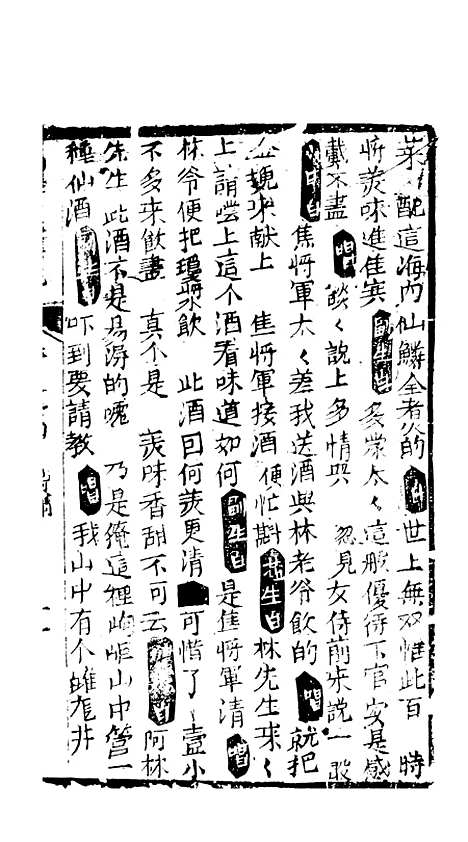 菜々配這海內仙鱗全煮的 世上無双惟此百 時
將羡味進佳 副生白 多蒙太々這般優待下官安是感
載不盡 唱 談々說上多情與 忽見女侍前來說一敢
焦將軍太々差我送酒與林老爷飲的 唱 就把
金觥來献上 焦將軍接酒便忙斟 老生白 林先生來々
上請嘗上這个酒看味道如何 副生白 是焦將軍清 唱
林爷便把瓊漿飲 此酒因何羡更清 可惜了一壺小
不多來飲盡 真个是 羡味香甜不可云 白 阿林
先生此酒不是易淂的嘎 乃是俺這裡 山中官一
種仙酒 副生白 吓到要請教 唱 我山中有个 井